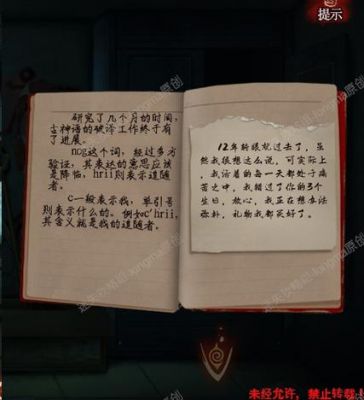 提示
研究了几个月的时间,
古神语的破译工作终于有
了进展。
nog这个词，经过多方
验证，其表达的意思应该
是降临，hrii则表示追随
者。
c一般表示我，单引号
则表示什么的。例如c'hrii,
其含义就是我的追随者。
12年转眼就过去了，虽
然我很想这么说，可实际上
，我活着的每一天都处于痛
苦之中，我错过了你的3个
生日，放心，我正在想办法
弥补，礼物我都买好了。
未经允许，禁止转载！